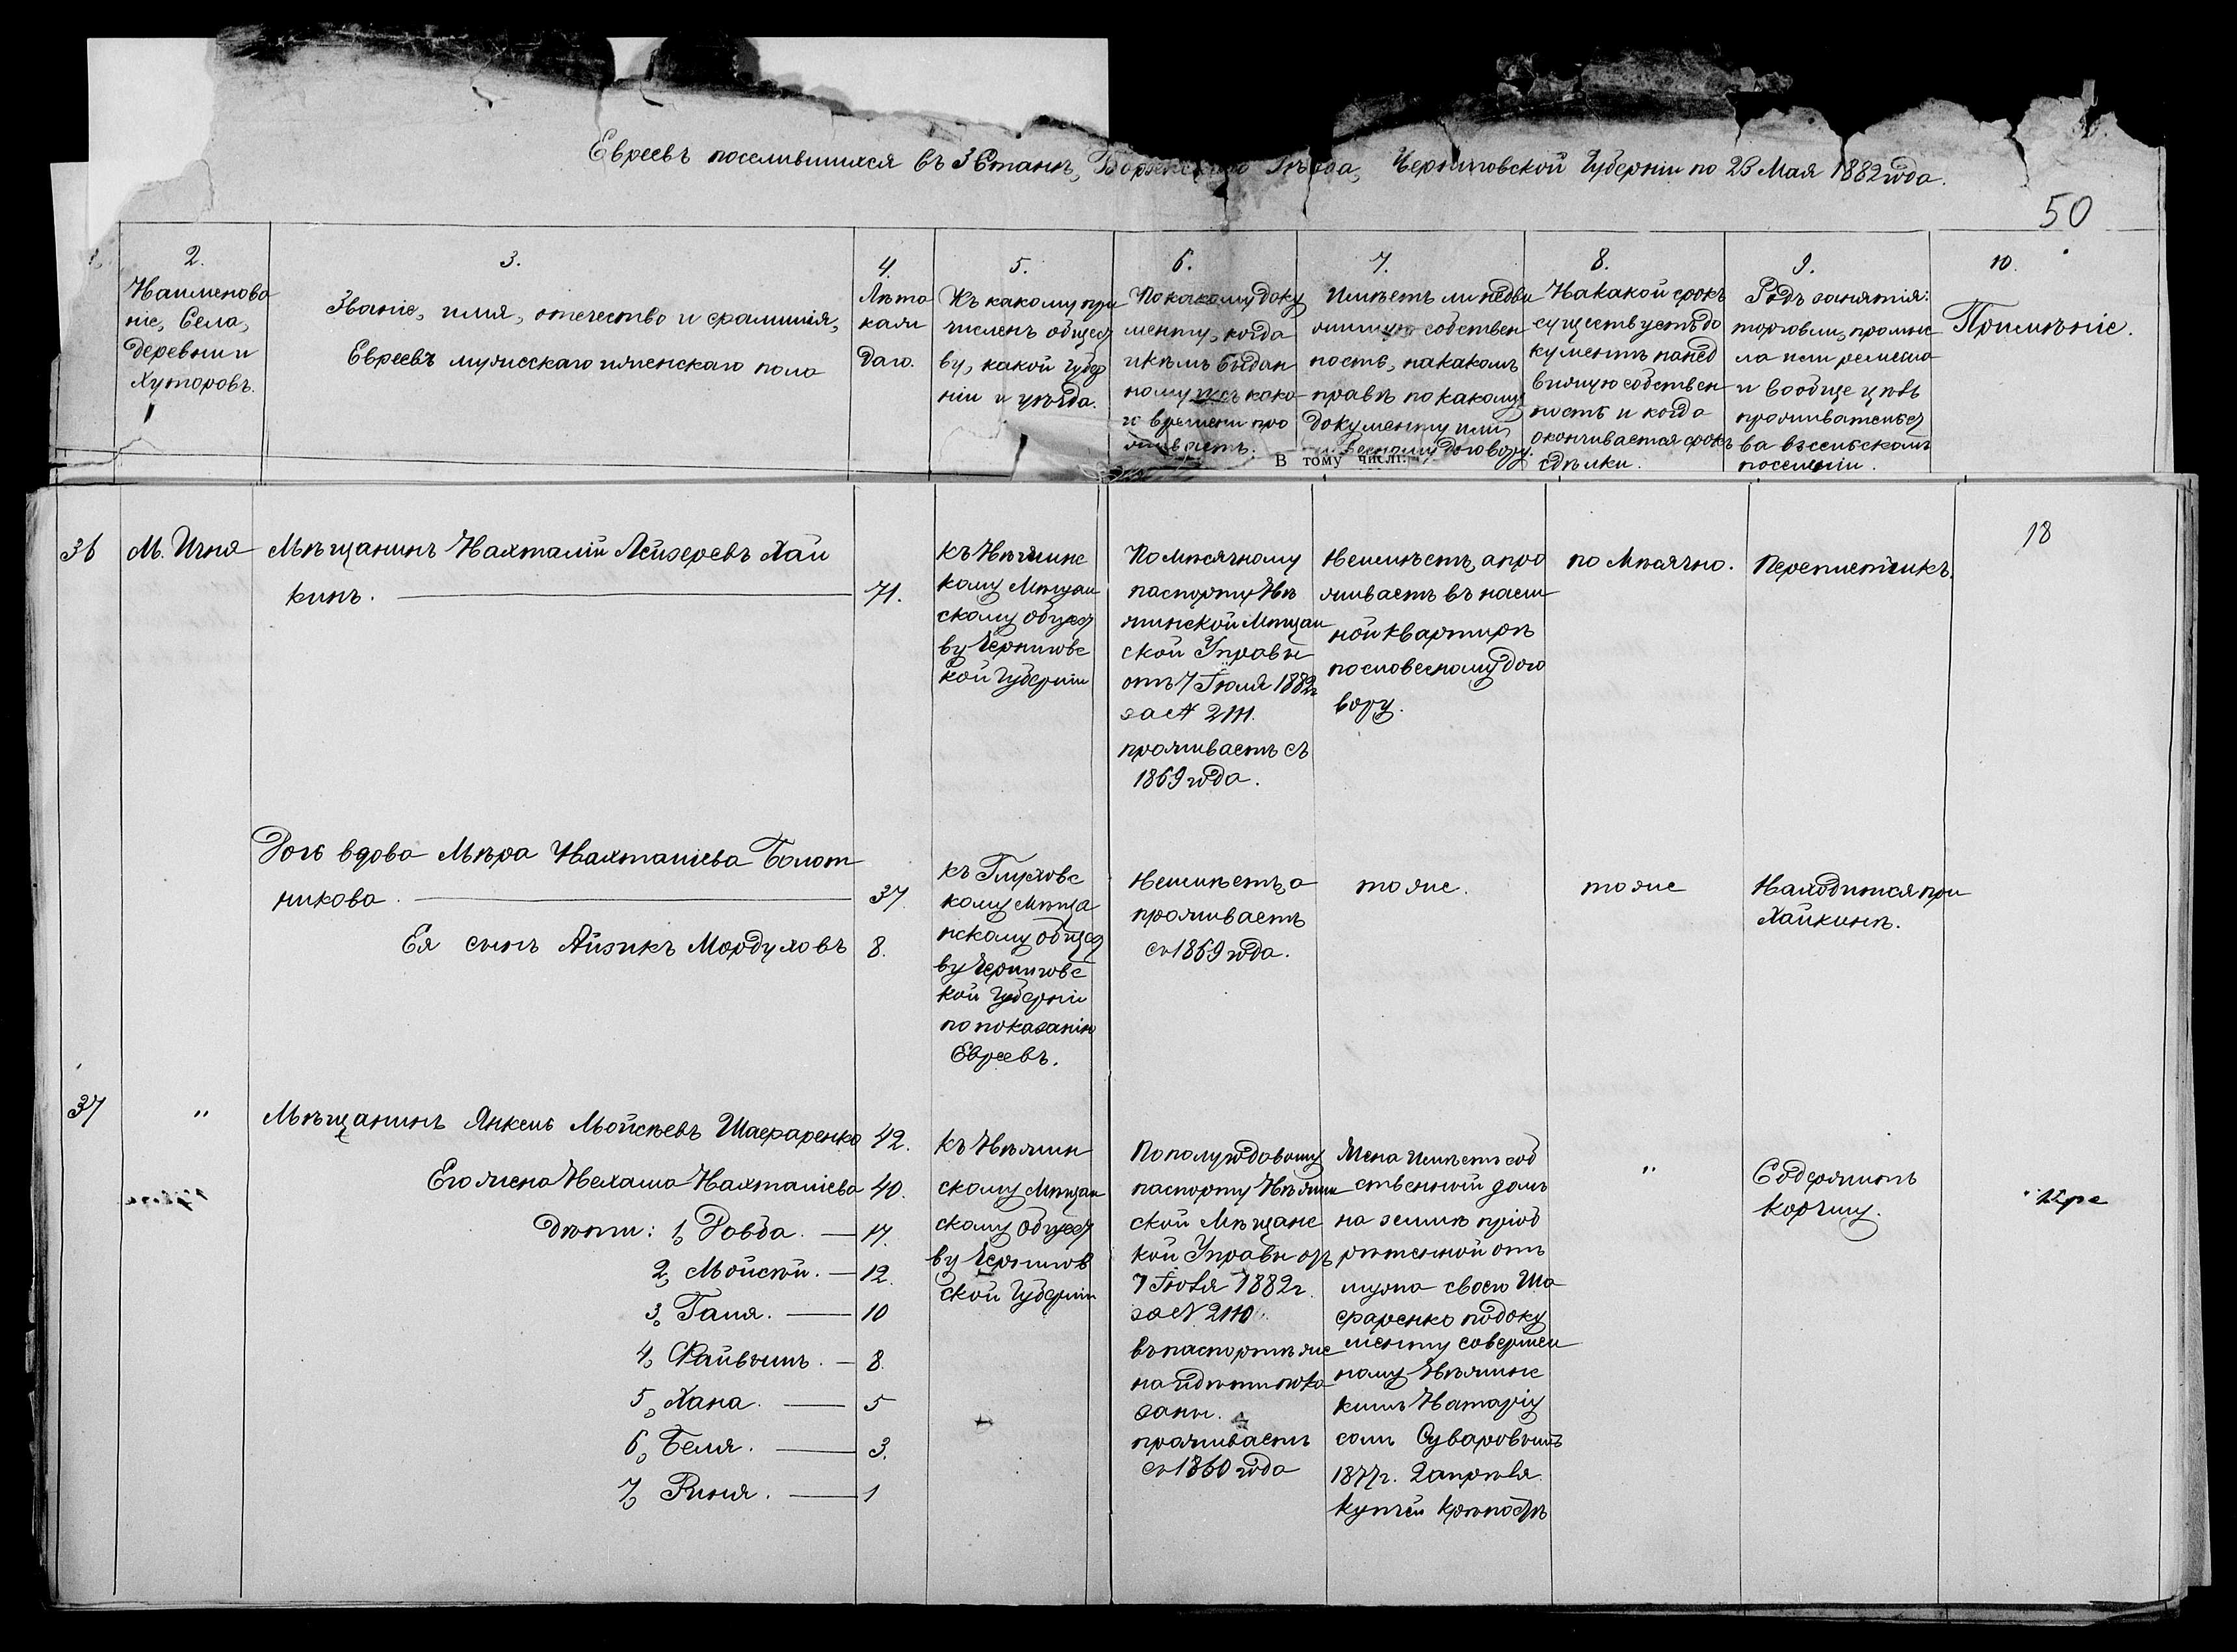 Евреевъ поселившихся въ 3 Станѣ, Борзенскаго Уѣзда, Черниговской Губерніи по 23 Мая 1882 года.
50
2.
Наименова
ніе, Села,
деревни и
Хуторовъ.
3.
Званіе, имя, отечество и фамилія,
Евреевъ мужескаго и женскаго пола
4.
Лѣта
каж
даго.
5.
Къ какому при
численъ общест
ву, какой Губер
ніи и уѣзда.
6.
По какому доку
менту, когда
и кѣмъ выдан
ному и съ како
го времени про
живаетъ.
7.
Имѣетъ ли недви
жимую собствен
ность, на какомъ
правѣ по какому
документу или
словесному договору.
8.
На какой срокъ
существуетъ до
кументъ на нед
вижую собствен
ность и когда
оканчивается срокъ
сдѣлки.
9.
Родъ занятія:
торговли, промыс
ла или ремесла
и вообще цѣль
прожительст
ва въ сельскомъ
поселеніи.
10.
Примѣніе.
В тому числі:
18
36
М. Ичня
Мѣщанинъ Нахталій Лейзеровъ Хай
кинъ.
71.
къ Нѣжинс
кому Мѣщан
скому общест
ву Черниговс
кой Губерніи
По мѣсячному
паспорту Нѣ
жинской Мѣщан
ской Управы
отъ 7 Іюля 1882г
за № 2111.
проживаетъ съ
1869 года.
Неимѣетъ, а про
живаетъ въ наем
ной квартирѣ
по словесному дого
вору.
по Мѣсячно.
Переплетчикъ.
Дочь вдова Мѣра Нахталіева Болот
никова.
37
Ея сынъ Айзикъ Мордуховъ
8.
къ Глуховс
кому Мѣща
нскому общест
ву Черниговс
кой Губерніи
по показанію
Евреевъ.
Неимѣетъ, а
проживаетъ
съ 1869 года.
тоже.
тоже
Находится при
Хайкинѣ.
37
"
Мѣщанинъ Янкель Мойсѣевъ Шафаренко
42.
Его жена Нехама Нахталіева
40.
Дѣти: 1, Довба. — 17.
2, Мойсѣй. — 12.
3, Галя. — 10
4, Файвышъ. — 8.
5, Хана. — 5
6, Беля. — 3.
7, Риня. — 1
къ Нѣжин
скому Мѣщан
скому общест
ву Чернигов
ской Губерніи
По полугодовому
паспорту Нѣжин
ской Мѣщанс
кой Управы отъ
7 Іюля 1882г.
за № 2110
въ паспортѣ же
проживаетъ
съ 1860 года
Жена имѣетъ соб
ственный домъ
на землѣ пріоб
рѣтенной отъ
мужа своего Ша
фаренко по доку
менту совершен
ному Нѣжинс
кимъ Натаріу
сомъ Суваровымъ
1877г. 2 апрѣля
купчей крѣпость
"
Содержитъ
корчму.